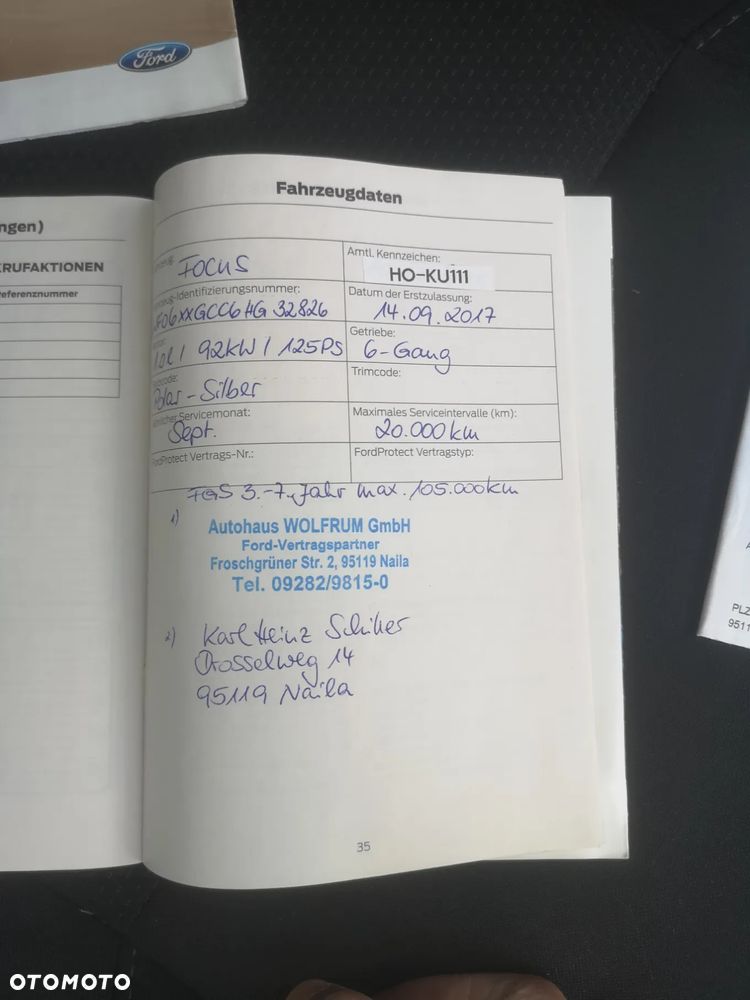 Ford
ngen)
RUFAKTIONEN
eferenznummer
Fahrzeugdaten
FOCUS
Amtl. Kennzeichen:
HO-KU111
Fahrzeug-Identifizierungsnummer:
WF06XXGCC6HG32826
Datum der Erstzulassung:
14.09.2017
1.0l / 92kW / 125PS
Getriebe:
6-Gang
Polar-Silber
Trimcode:
Servicemonat:
Sept.
Maximales Serviceintervalle (km):
20.000km
FordProtect Vertrags-Nr.:
FordProtect Vertragstyp:
FGS 3.-7. Jahr max. 105.000km
1)
Autohaus WOLFRUM GmbH
Ford-Vertragspartner
Froschgrüner Str. 2, 95119 Naila
Tel. 09282/9815-0
2) Karl Heinz
Drosselweg 14
95119 Naila
35
PLZ
9511
OTOMOTO